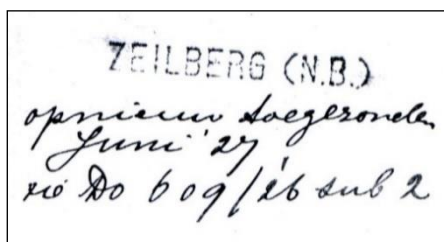 ZEILBERG (N.B.)
opnieuw toegezonden
Juni '27
zie Do 609/26 sub 2